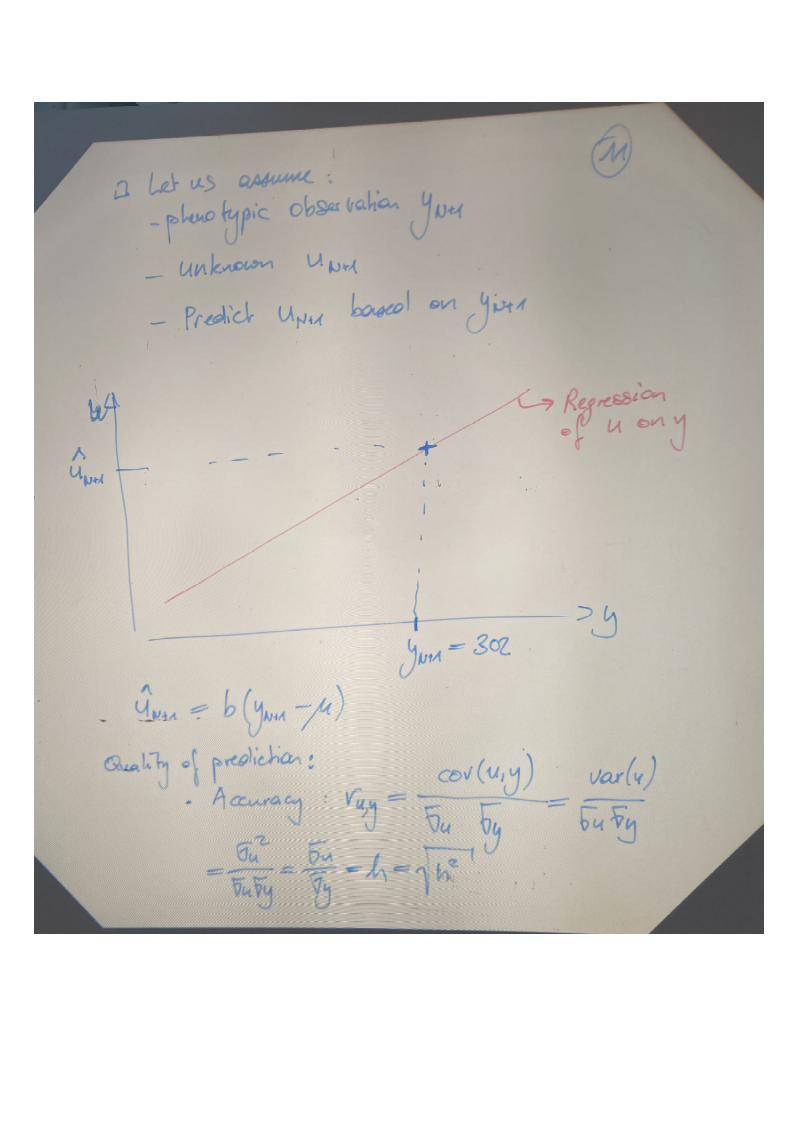 11
Let us assume:
- phenotypic observation y_{N+1}
- unknown u_{N+1}
- Predict u_{N+1} based on y_{N+1}
u
Regression
of u on y
û_{N+1}
y
y_{N+1} = 302
û_{N+1} = b(y_{N+1} - μ)
Quality of prediction:
• Accuracy : r_{u,y} = cov(u,y) / (σ_u σ_y) = var(u) / (σ_u σ_y)
= σ_u² / (σ_u σ_y) = σ_u / σ_y = h = √h²